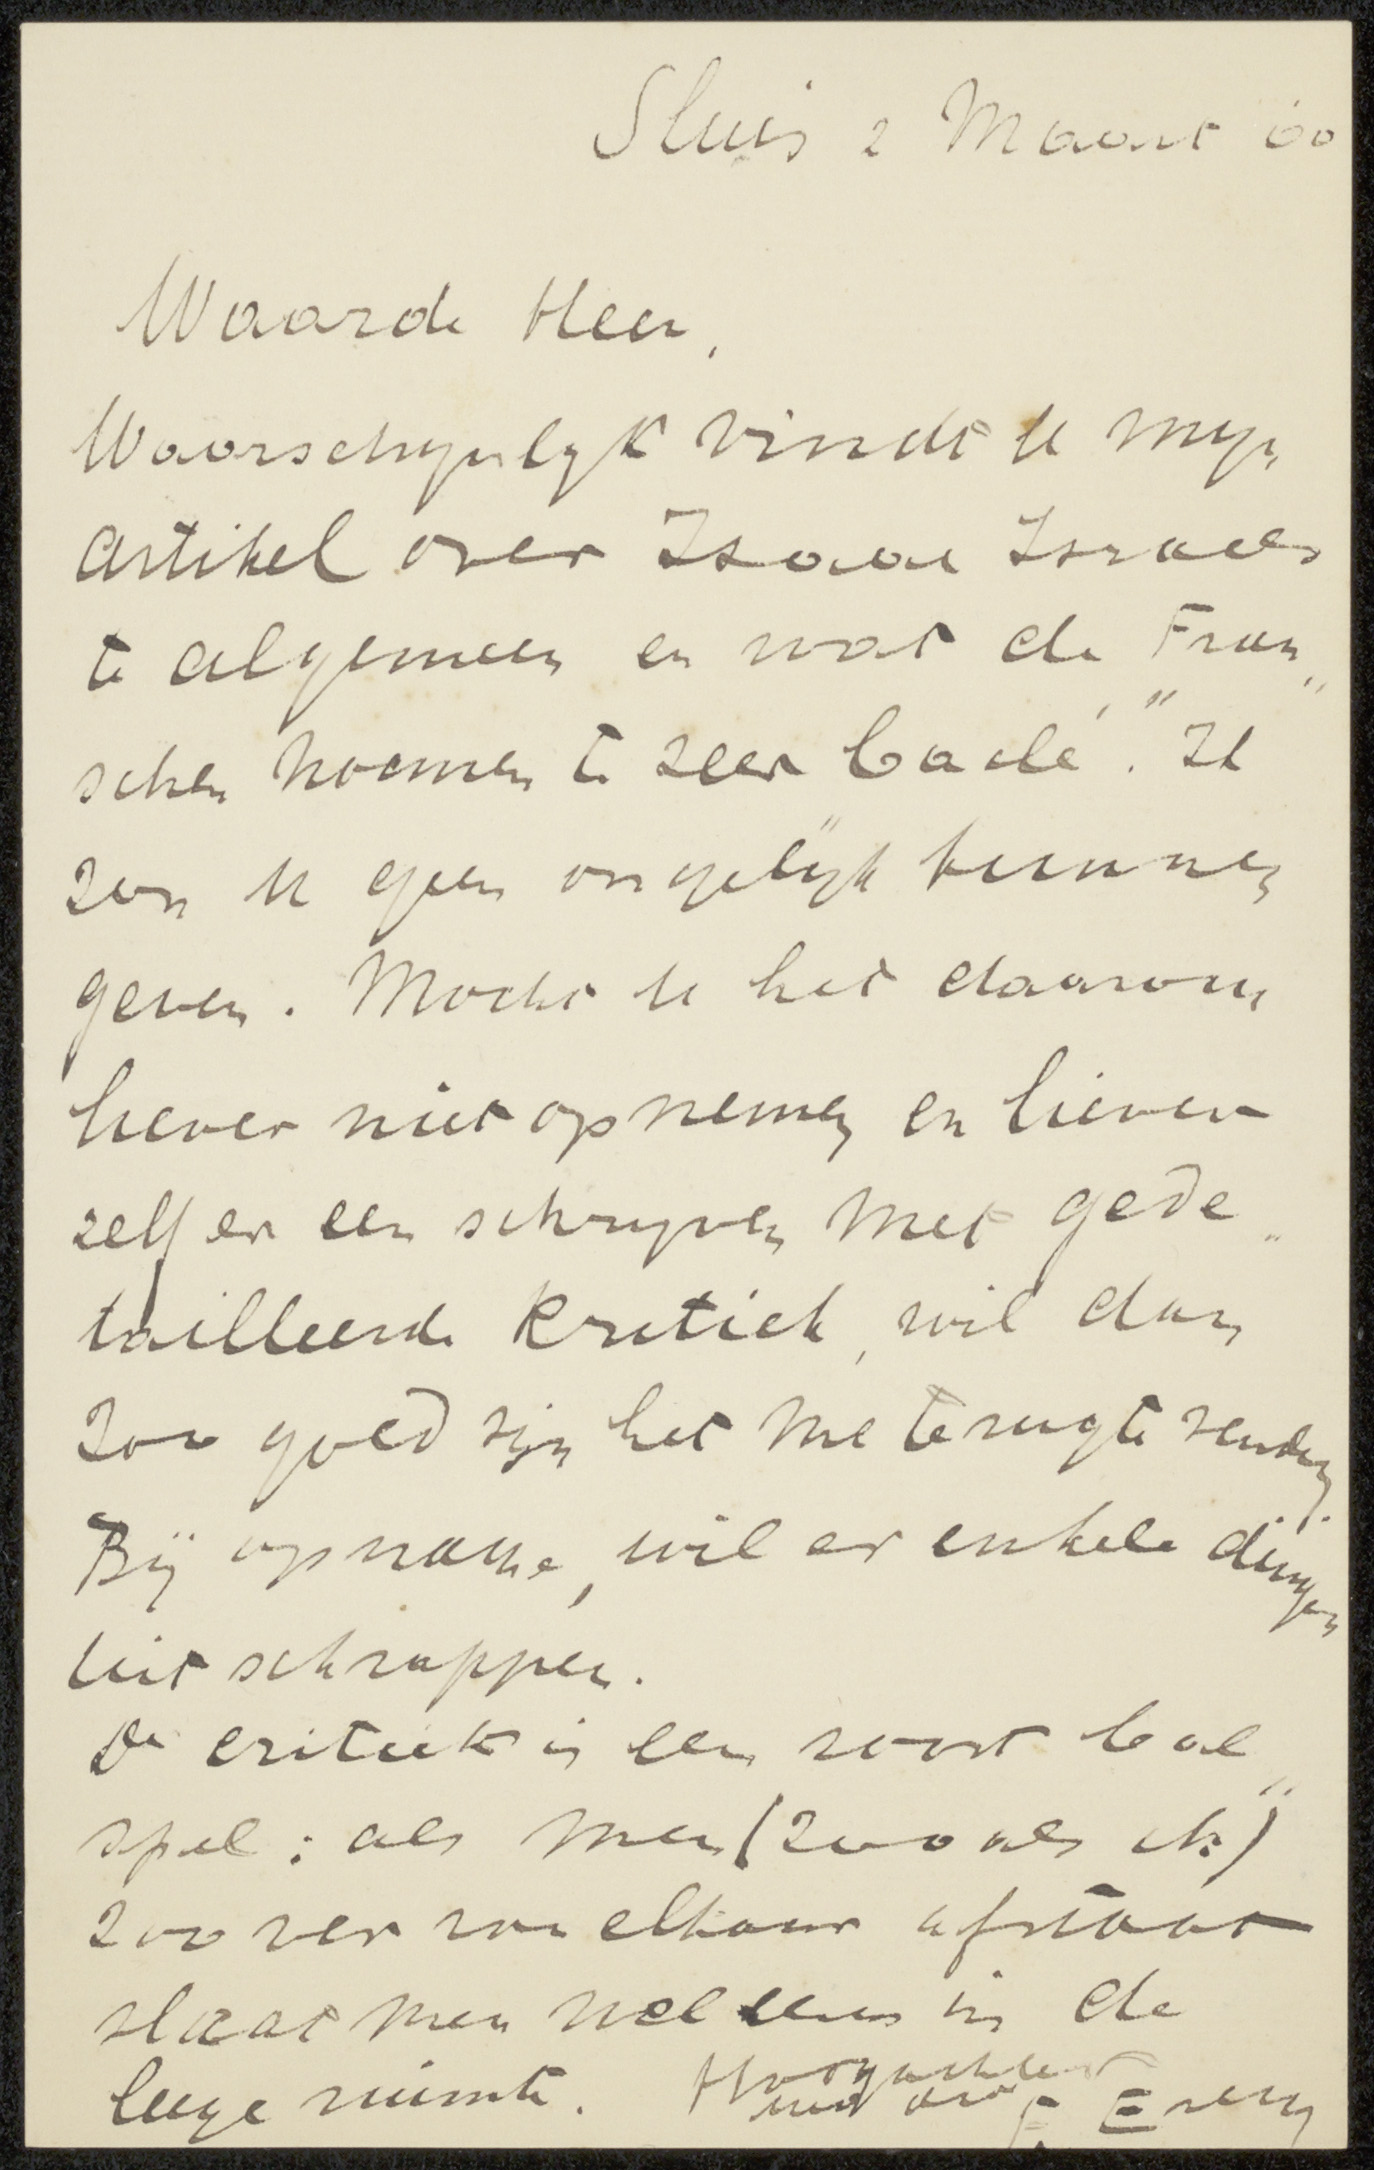 Sluis 2 Maart 00
Waarde Heer,
Waarschynlyk vindt U myn
artikel over Isaac Israels
te algemeen en wat de Fran„
schen noemen te zeer „baclé”. Ik
zou U geen ongelyk kunnen
geven. Mocht U het daarom
liever niet opnemen en liever
zelf er een schryven met gede„
tailleerde kritiek, wil dan
zoo goed zijn het me terug te zenden.
Bij opname, wil er enkele dingen
uit schrappen.
De critiek is een soort bal„
spel: als men (zooals ik)
zoo ver van elkaar afstaat
slaat men wel eens in de
leege ruimte. Hoogachtend
Uw dw F. Erens